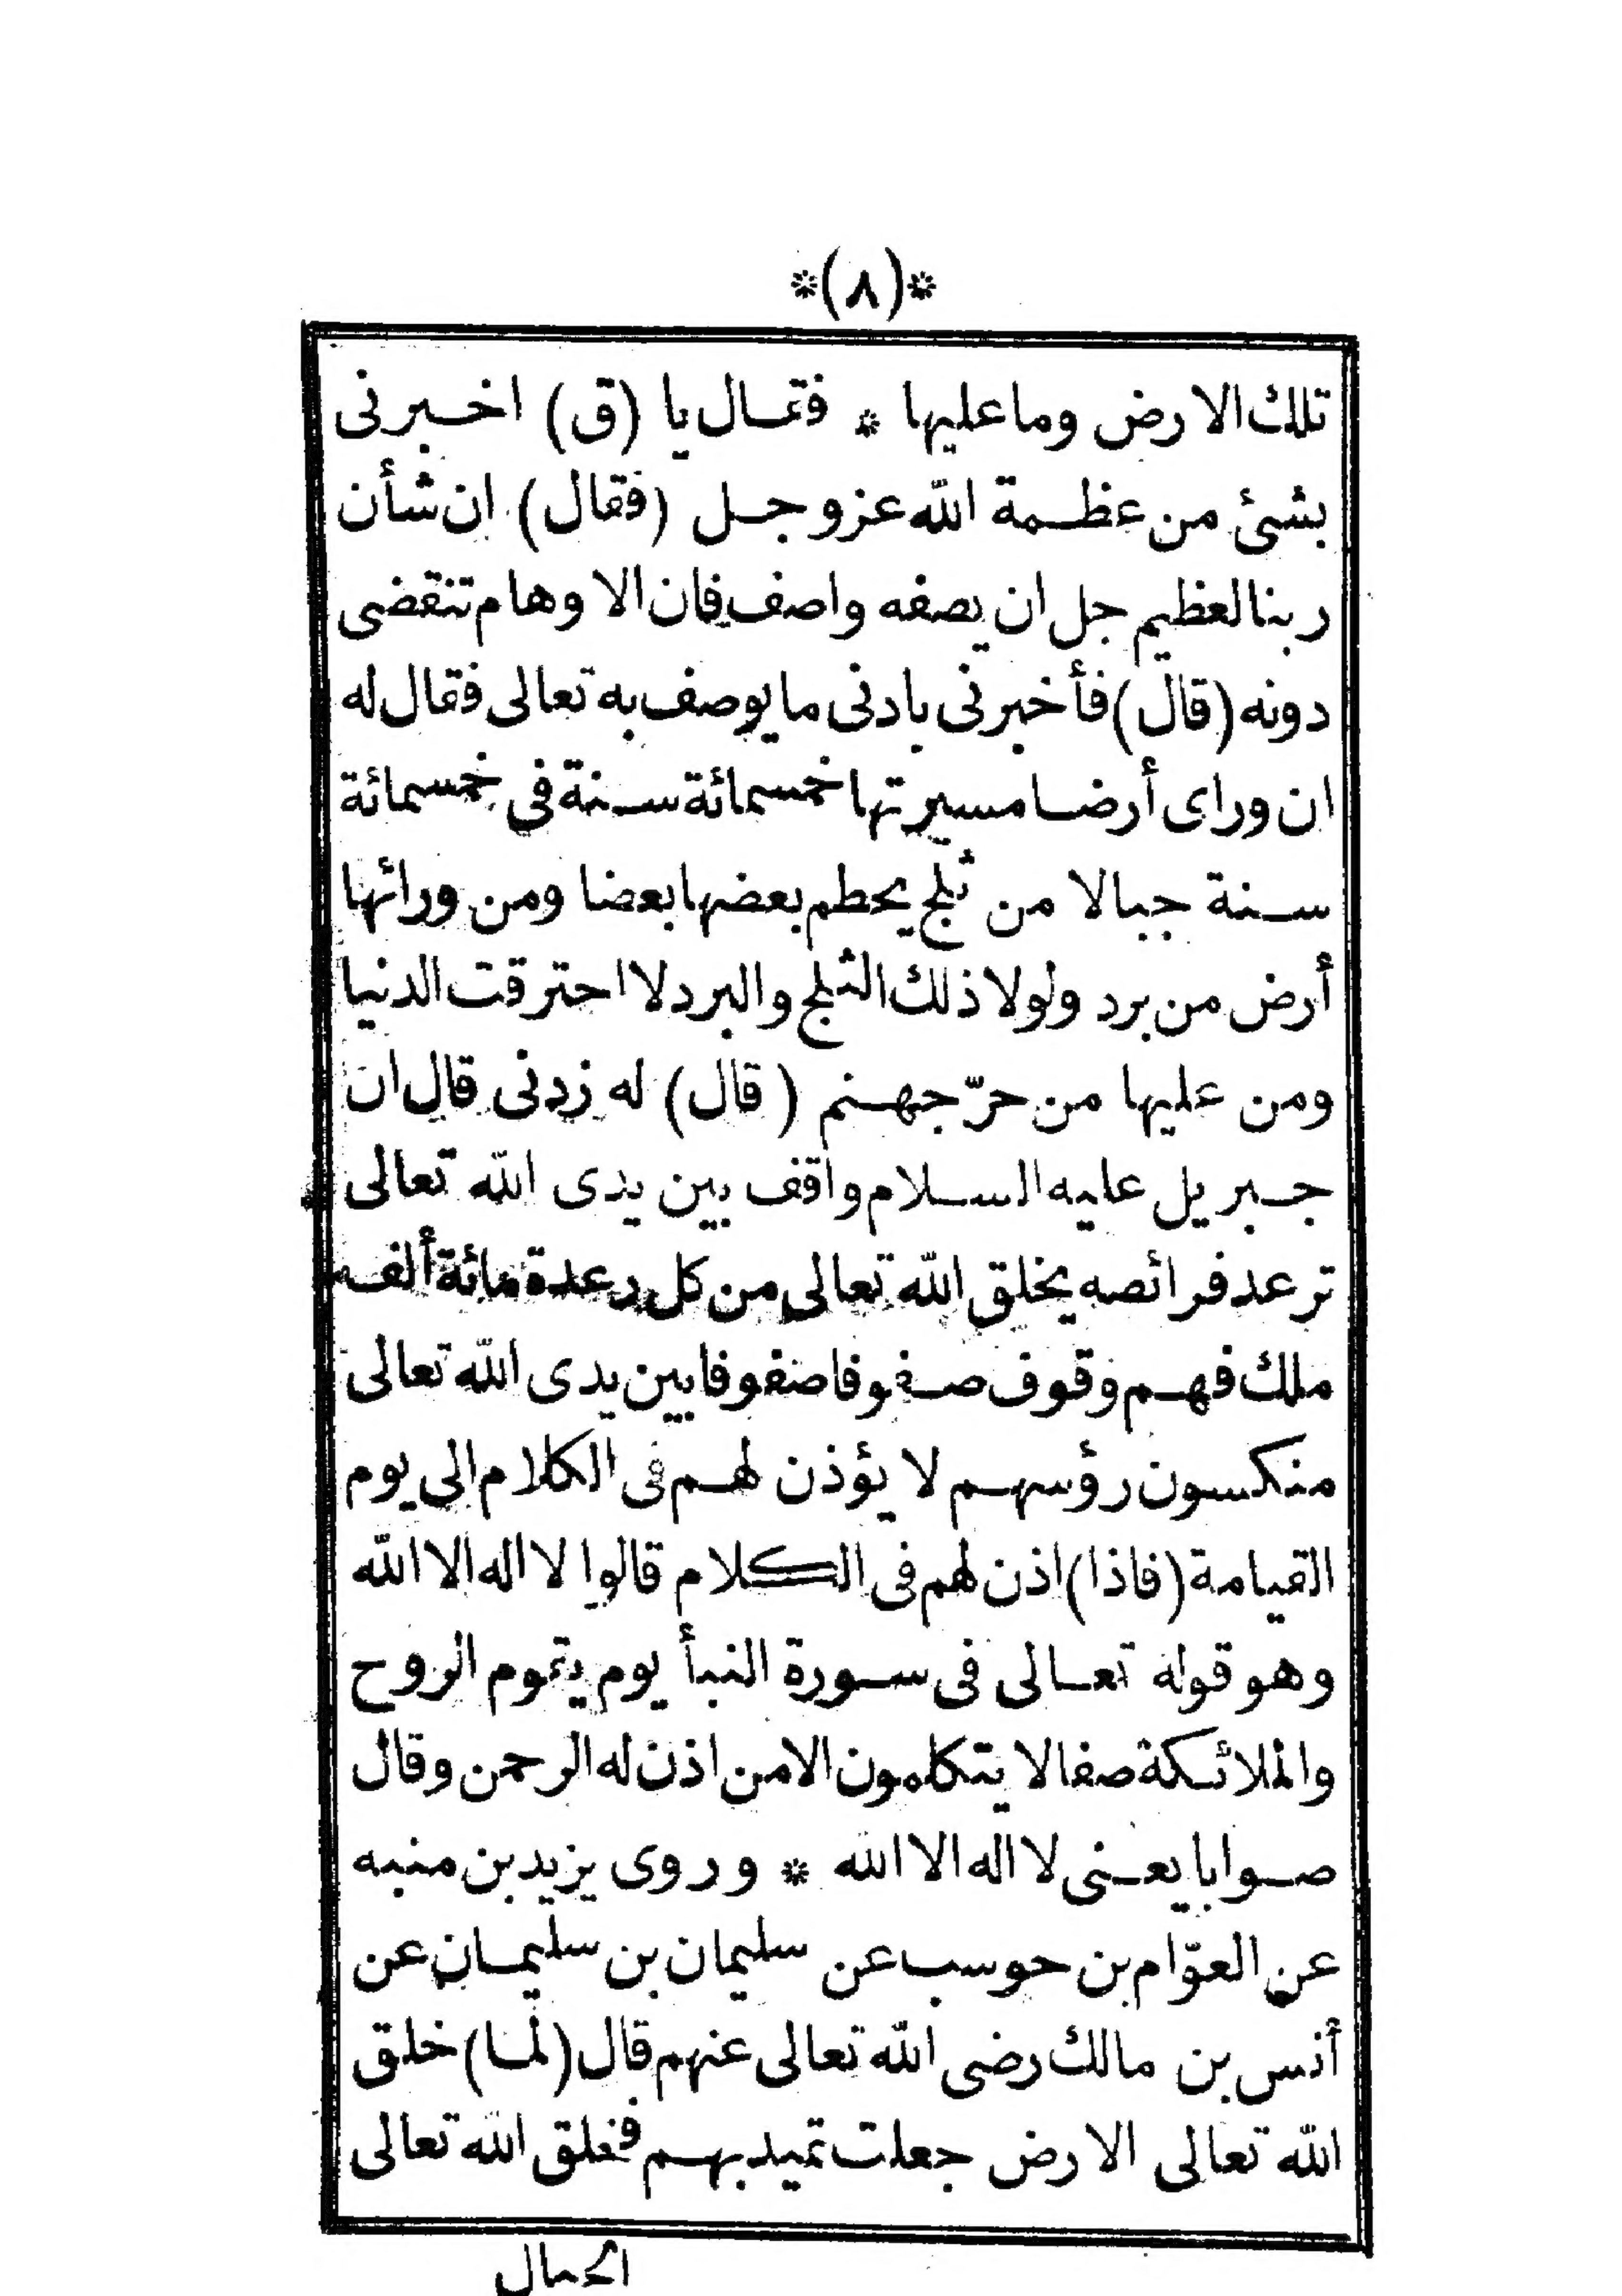 *(٨)*
تلك الارض وما عليها * فقال يا (ق) اخبرنى
بشئ من عظمة الله عز وجل (فقال) ان شأن
ربنا لعظيم جل ان يصفه واصف فان الاوهام تنقضى
دونه (قال) فأخبرنى بادنى ما يوصف به تعالى فقال له
ان وراى أرضا مسيرتها خمسمائة سنة فى خمسمائة
سنة جبالا من ثلج يحطم بعضها بعضا ومن ورائها
أرض من برد ولولا ذلك الثلج والبرد لااحترقت الدنيا
ومن عليها من حرّ جهنم (قال) له زدنى قال ان
جبريل عليه السلام واقف بين يدى الله تعالى
ترعد فرائصه يخلق الله تعالى من كل رعدة مائة ألف
ملك فهم وقوف صفوفا صفوفا بين يدى الله تعالى
منكسون رؤسهم لا يؤذن لهم فى الكلام الى يوم
القيامة (فاذا) اذن لهم فى الكلام قالوا لا اله الا الله
وهو قوله تعالى فى سورة النبأ يوم يقوم الروح
والملائكة صفا لا يتكلمون الا من اذن له الرحمن وقال
صوابا يعنى لا اله الا الله * وروى يزيد بن منبه
عن العوّام بن حوسب عن سليمان بن سليمان عن
أنس بن مالك رضى الله تعالى عنهم قال (لما) خلق
الله تعالى الارض جعلت تميد بهم فخلق الله تعالى
الجبال